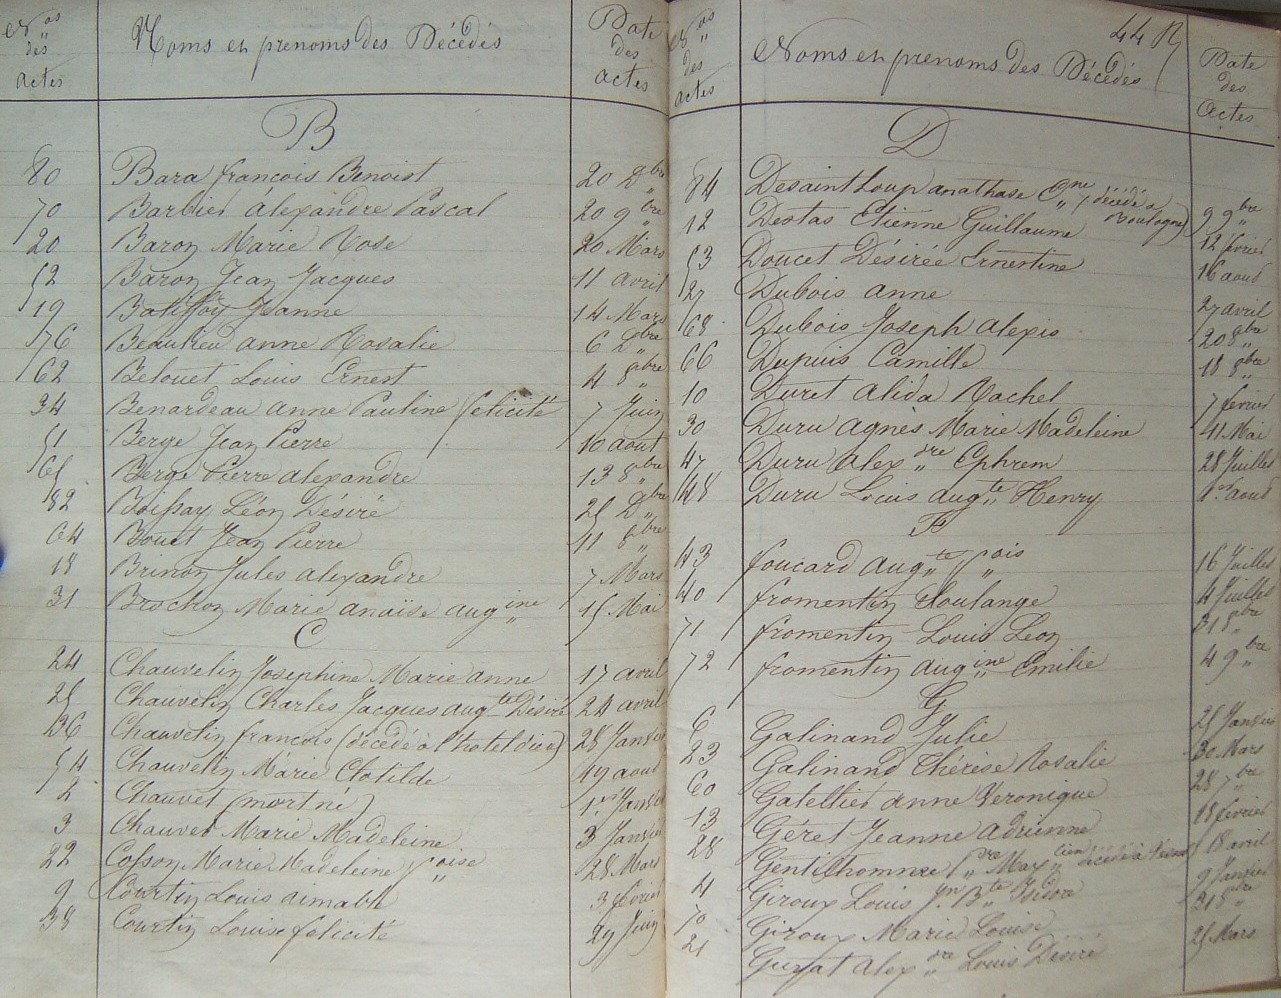 Nos des Actes Noms et prenoms des Décédés Date des actes
B
80 Bara françois Benoist 20 Dbre
70 Barbier alexandre Pascal 20 9bre
20 Baron Marie Rose 20 Mars
52 Baron Jean Jacques 11 avril
19 Jeanne 14 Mars
76 Beaulieu anne Rosalie 6 Dbre
62 Belouet Louis Ernest 4 8bre
34 Benardeau anne Pauline félicité 7 Juin
51 Berge Jean Pierre 10 aout
65 Berge Pierre alexandre 13 8bre
82 Boissay Léon Désiré 25 Dbre
64 Bouet Jean Pierre 11 8bre
18 Brinon Jules alexandre 7 Mars
31 Brochon Marie anaïse augine 15 Mai
C
24 Chauvelin Josephine Marie anne 17 avril
25 Chauvelin Charles Jacques augte Désiré 24 avril
36 Chauvelin francois (décédé à l'hotel dieu) 28 Janvier
54 Chauvelin Marie Clotilde 19 aout
2 Chauvet (mort né) 1er Janvier
3 Chauvet Marie Madeleine 3 Janvier
22 Cosson Marie Madeleine foise 28 Mars
9 Courtin Louis aimable 3 février
38 Courtin Louise félicité 29 Juin
44
Nos des actes Noms et prenoms des Décédés Date des Actes
D
84 Desaint Loup anathase (décédé à Boulogne) 9 9bre
12 Destas Etienne Guillaume 12 février
53 Doucet Désirée Ernestine 16 aout
27 Dubois anne 27 avril
68 Dubois Joseph alexis 20 8bre
66 Dupuis Camille 18 8bre
10 Duret alida Rachel 7 février
30 Duru agnès Marie Madeleine 11 Mai
47 Duru alexdre Ephrem 28 Juillet
48 Duru Louis augte Henry 1er aout
F
43 foucard augte fois 16 Juillet
40 fromentin Soulange 4 Juillet
71 fromentin Louis Leon 31 8bre
72 fromentin augine Emilie 4 9bre
G
6 Galinand Julie 25 Janvier
23 Galinand Thérèse Rosalie 30 Mars
60 Gatellier anne Veronique 28 7bre
13 Géret Jeanne adrienne 18 février
28 Gentilhomme décédé à 18 avril
4 Giroux Louis Jn Bte Isidore 9 Janvier
70 Giroux Marie Louise 31 8bre
21 alexdre Louis Désiré 25 Mars